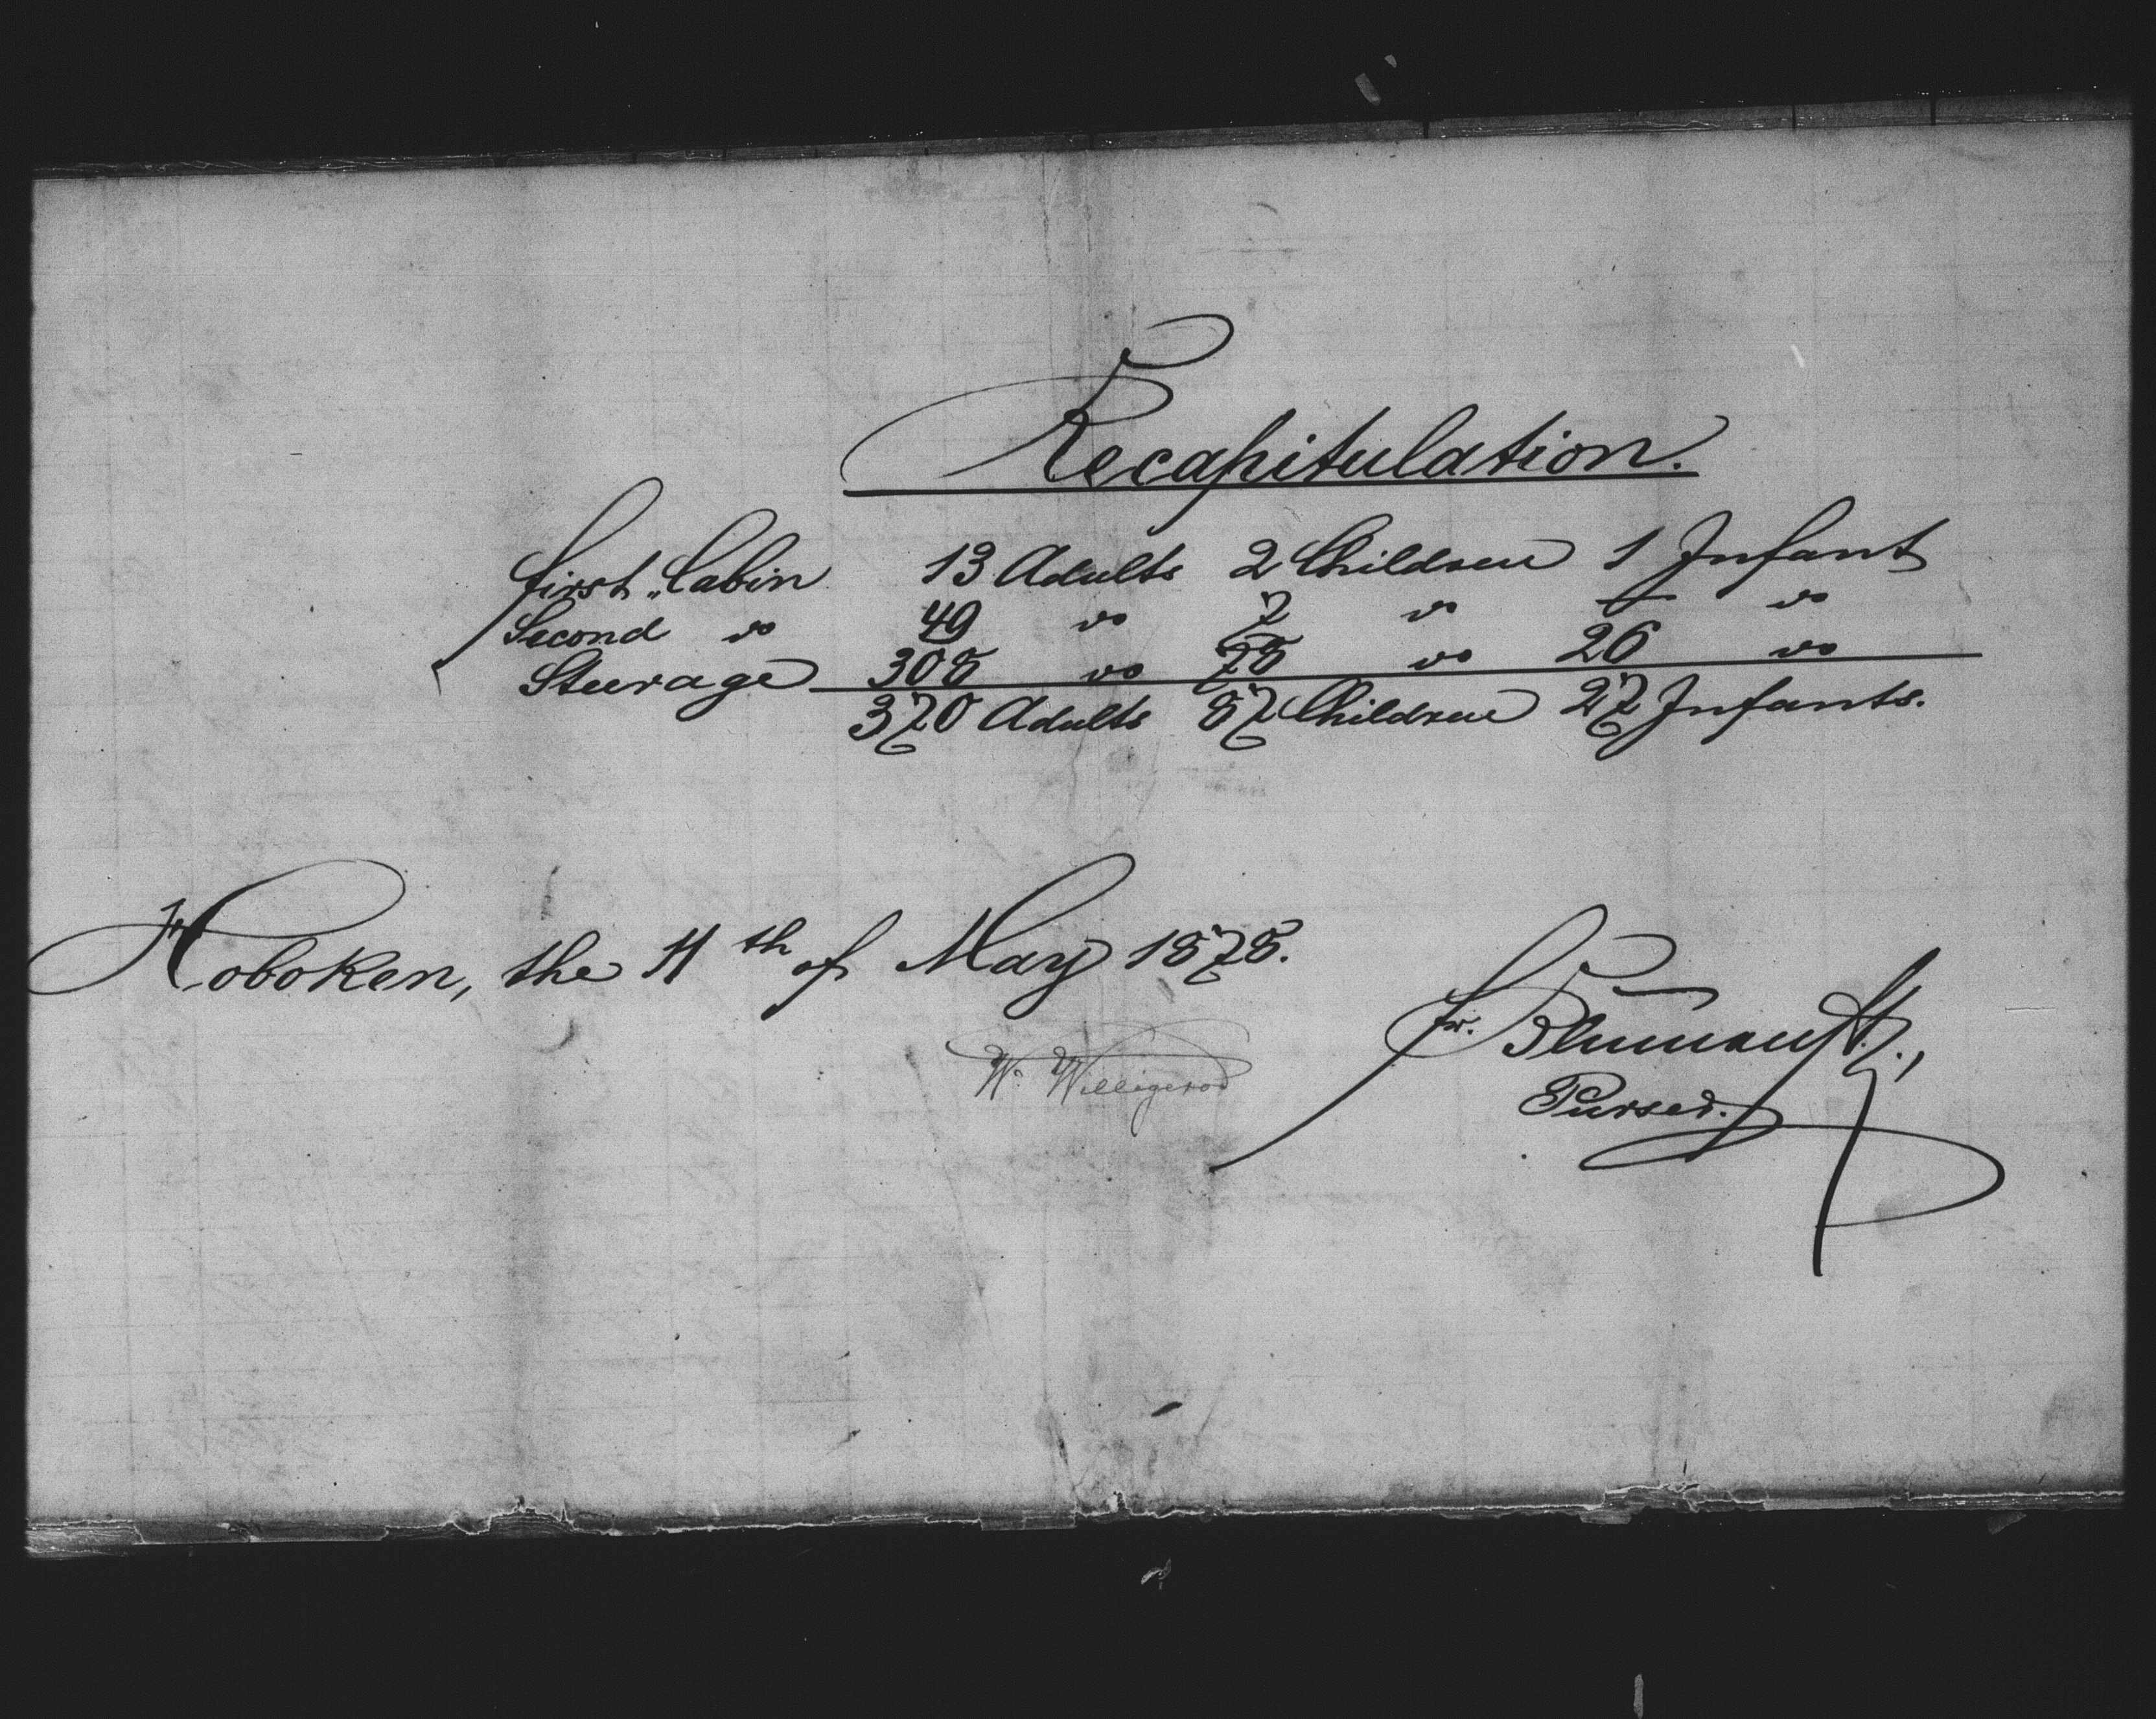 Recapitulation.
First „ Cabin 13 Adults 2 Children 1 Infant
Second do 49 do 7 do — do
Steerage 308 do 78 do 26 do
370 Adults 87 Children 27 Infants.
Hoboken, the 11th of May 1878.
Fr.
W. Willigerod
Purser.